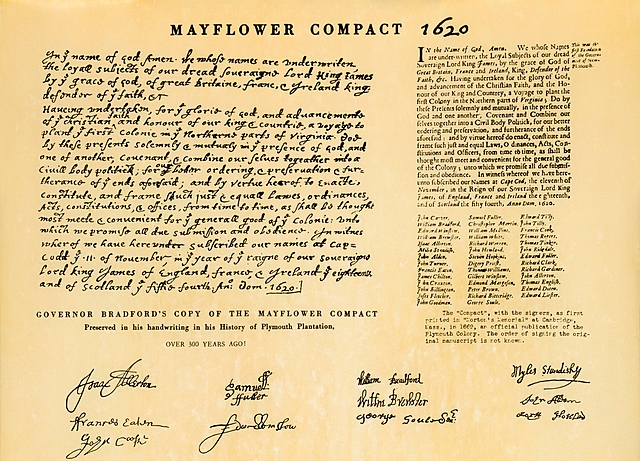 MAYFLOWER COMPACT 1620
In yͤ name of god Amen. We whose names are underwriten,
the loyall subjects of our dread soveraigne Lord King James
by yͤ grace of god, of great Britaine, franc, & Ireland king,
defender of yͤ faith, &c
Haveing undertaken, for yͤ glorie of god, and advancements
of yͤ christian faith and honour of our king & countrie, a voyage to
plant yͤ first colonie in yͤ Northerne parts of Virginia. Doe
by these presents solemnly & mutualy in yͤ presence of god, and
one of another, covenant, & combine our selves together into a
Civill body politick; for our better ordering, & preservation & fur-
therance of yͤ ends aforesaid; and by vertue hearof to enacte,
constitute, and frame shuch just & equall Lawes, ordinances,
Acts, constitutions, & offices, from time to time, as shall be thought
most meete & convenient for yͤ generall good of yͤ Colonie: unto
which we promise all due submission and obedience. In witnes
wherof we have hereunder subscribed our names at Cap-
Codd yͤ .11. of November, in yͤ year of yͤ raigne of our soveraigne
Lord king James of England, france, & Ireland yͤ eighteenth
and of Scotland yͤ fiftie fourth. Ano: Dom. 1620.
GOVERNOR BRADFORD'S COPY OF THE MAYFLOWER COMPACT
Preserved in his handwriting in his History of Plymouth Plantation,
OVER 300 YEARS AGO!
This was the first Foundation of the Government of New-Plimouth.
IN the Name of God, Amen. We whose Names
are under-written, the Loyal Subjects of our dread
Sovereign Lord King James, by the grace of God of
Great Britain, France and Ireland, King, Defender of the
Faith, &c. Having undertaken for the glory of God,
and advancement of the Christian Faith, and the Ho-
nour of our King and Countrey, a Voyage to plant the
first Colony in the Northern parts of Virginia; Do by
these Presents solemnly and mutually, in the presence of
God and one another, Covenant and Combine our
selves together into a Civil Body Politick, for our better
ordering and preservation, and furtherance of the ends
aforesaid: and by virtue hereof do enact, constitute and
frame such just and equal Laws, Ordinances, Acts, Con-
stitutions and Officers, from time to time, as shall be
thought most meet and convenient for the general good
of the Colony; unto which we promise all due submis-
sion and obedience. In witness whereof we have here-
unto subscribed our Names at Cape Cod, the eleventh of
November, in the Reign of our Sovereign Lord King
James, of England, France and Ireland the eighteenth,
and of Scotland the fifty fourth, Anno Dom. 1620.
John Carver, Samuel Fuller, Edward Tilly,
William Bradford, Christopher Martin, John Tilly,
Edward Winslow, William Mullins, Francis Cook,
William Brewster, William White, Thomas Rogers,
Isaac Allerton, Richard Warren, Thomas Tinker,
Miles Standish, John Howland, John Ridgdale,
John Alden, Steven Hopkins, Edward Fuller,
John Turner, Digery Priest, Richard Clark,
Francis Eaton, Thomas Williams, Richard Gardiner,
James Chilton, Gilbert Winslow, John Allerton,
John Craxton, Edmund Margeson, Thomas English,
John Billington, Peter Brown, Edward Doten,
Joses Fletcher, Richard Bitteridge, Edward Liester,
John Goodman, George Soule,
The "Compact", with the signers, as first
printed in "Morton's Memorial" at Cambridge,
Mass., in 1669, an official publication of the
Plymouth Colony. The order of signing the orig-
inal manuscript is not known.
Isaac Allerton
Samuell ffuller
William Bradford
Myles Standish
Willm Brewster
Francis Eaton
George Soule